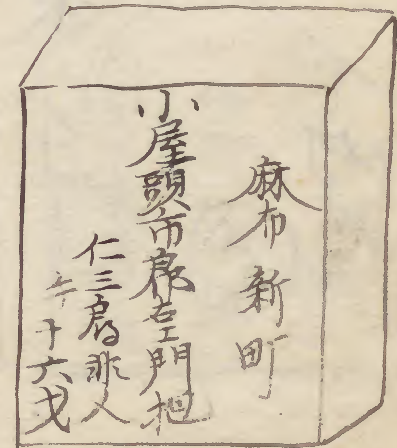 麻布新町
小屋頭市郎左エ門抱
仁三郎非人
年十六才